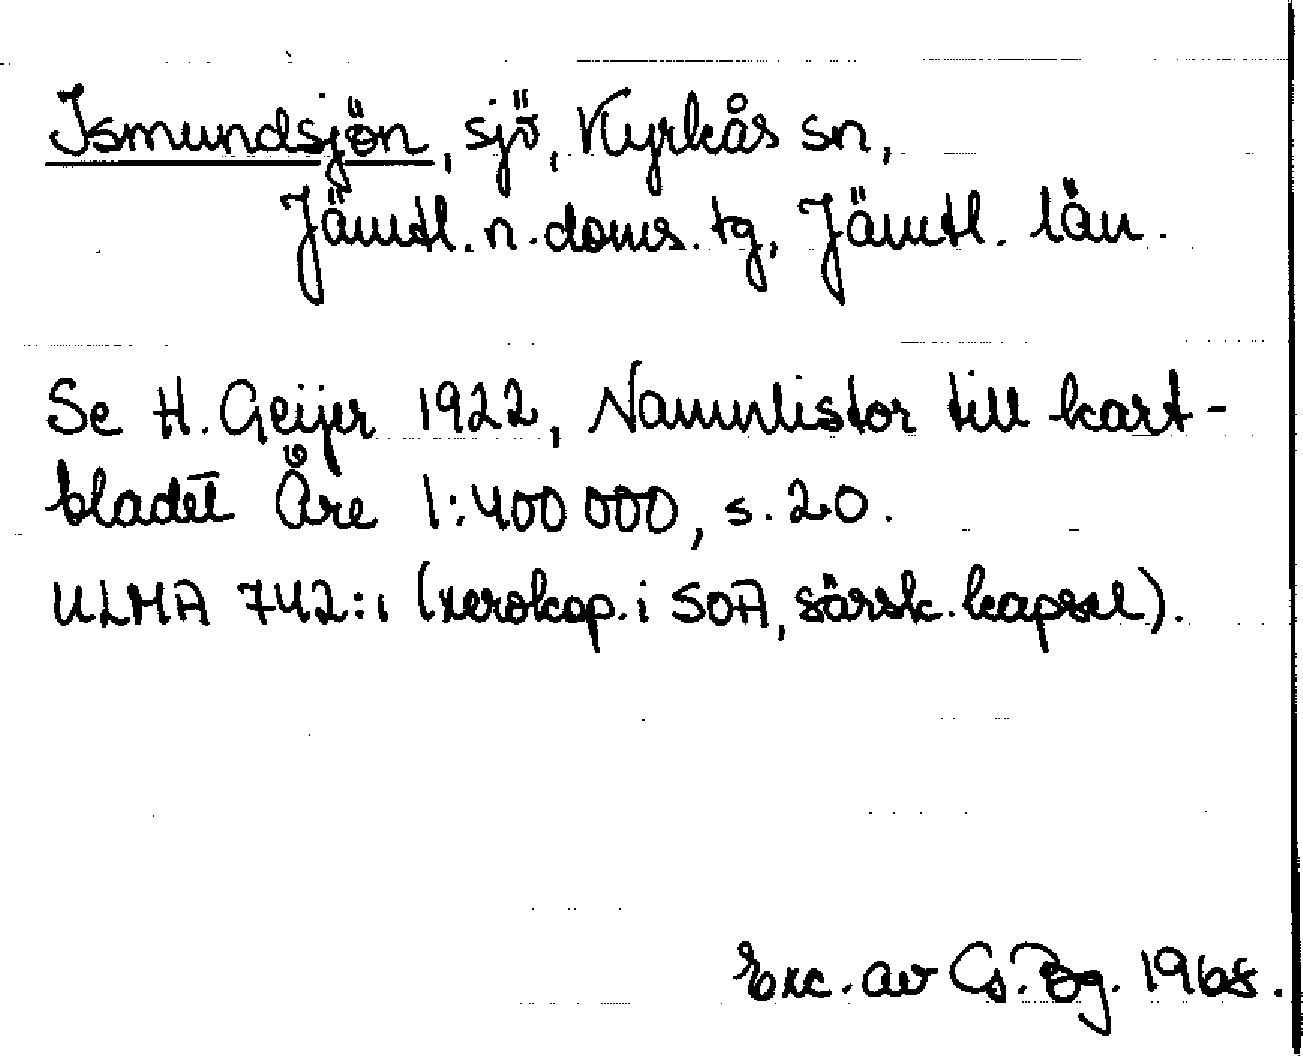 Ismundsjön, sjö, Kyrkås sn,
Jämtl. n. doms. tg, Jämtl. län.
Se H. Geijer 1922, Namnlistor till kart-
bladet Åre 1:400 000, s. 20.
ULMA 742:1 (xerokop. i SOA, särsk. kapsel).
Exc. av G. Bg. 1968.